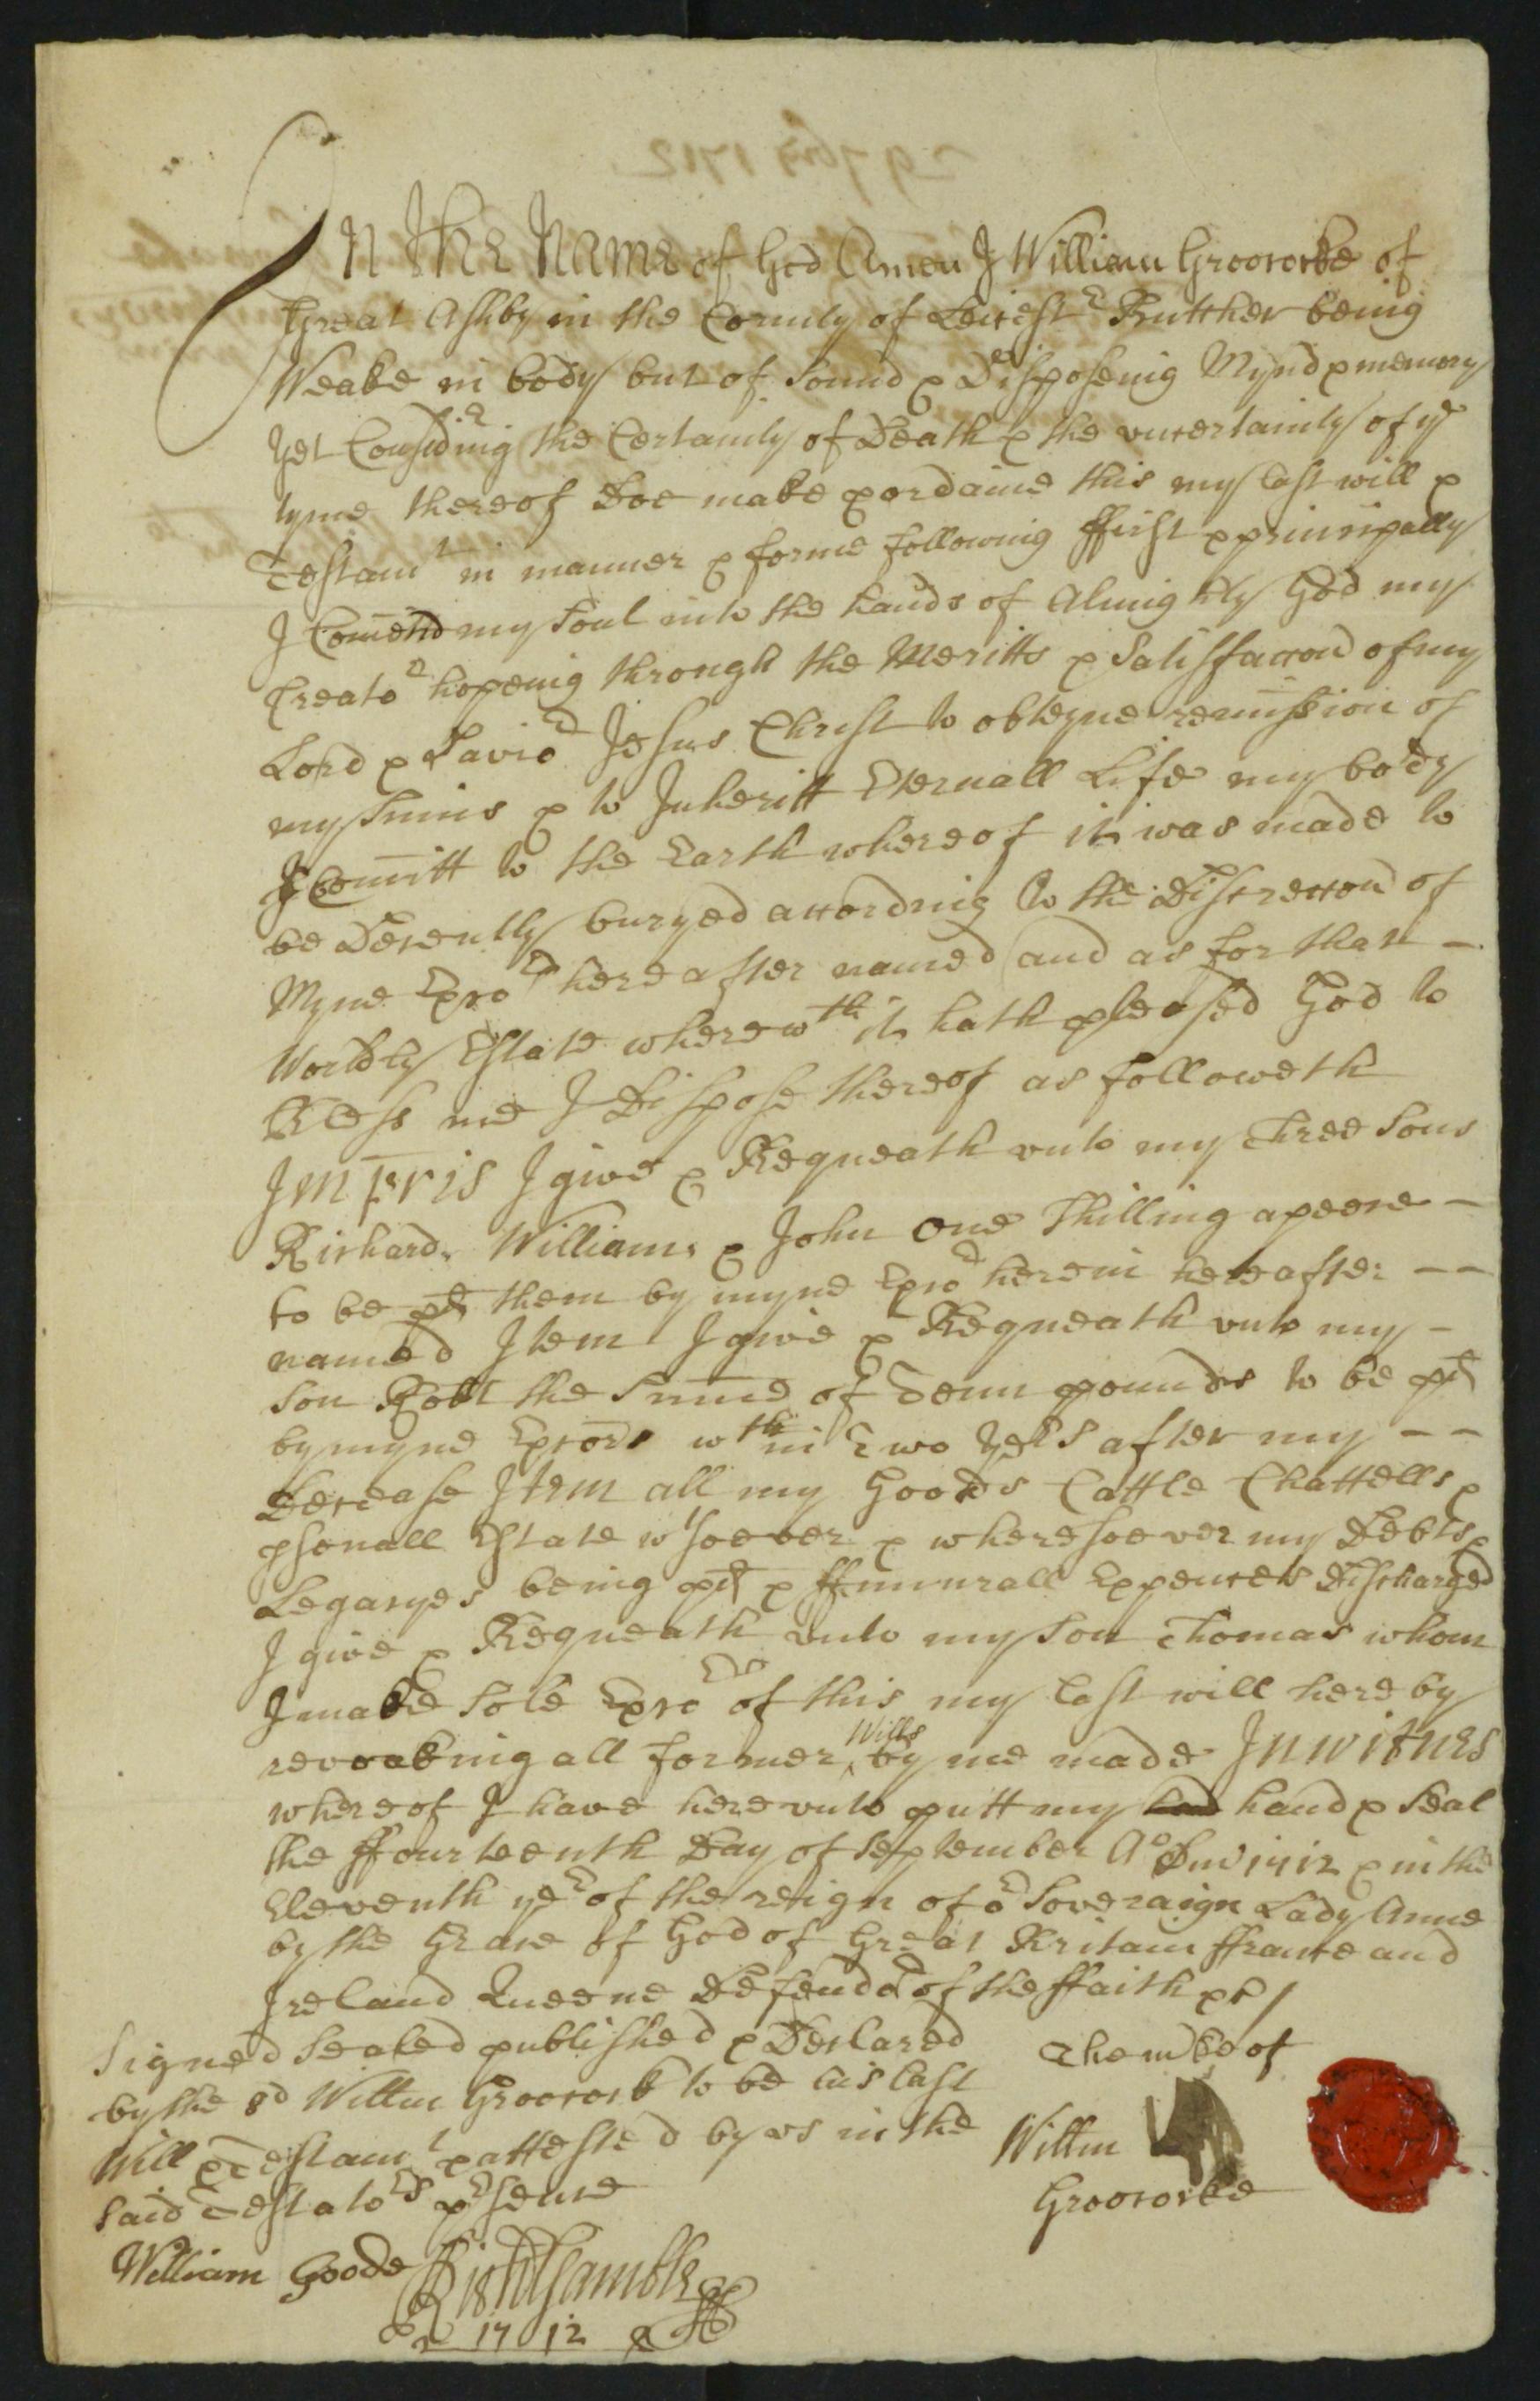 In The Name of God Amen I William Groococke of
Great Ashby in the County of Leicestr Butcher being
Weake in body but of Sound & Disposeing Mynd & memory
yet Considring the Certainty of Death & the uncertainty of ye
tyme thereof Doe make & ordaine this my last will &
Testamt in manner & forme following ffirst & principally
I Comend my Soul into the hands of Almighty God my
Creator hopeing through the Meritts & Satisfaccon of my
Lord & Savior Jesus Christ to obteyne remission of
my Sinns & to Inheritt Eternall Life my body
I Comitt to the Earth whereof it was made to
be Decently buryed according to the Discreccon of
Myne Exors hereafter named and as for that -
Worldly Estate wherewth it hath pleased God to
Bless me I Dispose thereof as followeth
Impris I give & Bequeath unto my Three Sons
Richard William & John One Shilling apeece -
to be pd them by myne Exor herein hereafter - -
named Item I give & Bequeath unto my -
Son Robt the Sume of Tenn pounds to be pd
by myne Exors wthin Two yeârs after my - -
Decease Item all my Goods Cattle Chattells &
psonall Estate wtsoever & wheresoever my Debts &
Legacyes being pd & ffunurall Expences Discharged
I give & Bequeath unto my Son Thomas whom
I make Sole Exors of this my last will hereby
revoakeing all former Wills by me made In witnes
whereof I have hereunto putt my had hand & Seal
the ffourteenth Day of September Ao Dni 1712 & in the
Eleventh yer of the reign of or Soveraign Lady Anne
by the Grace of God of Great Britain ffrance and
Ireland Queene Defendr of the ffaith &c /
Signed Sealed published & Declared
by the sd Willm Groocock to be his last
Will & Testamt & attested by us in the
said Testators prsence
William Goode
Richd Gamble
1712
The mke of
Willm
Groococke